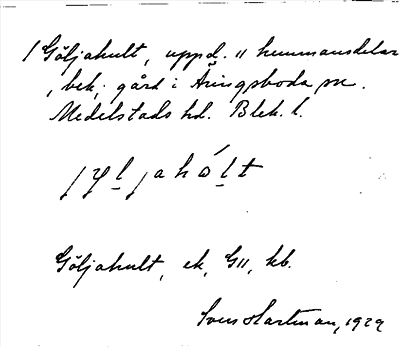 /Göljahult, uppd. 11 hemmansdelar
, bek. gård i Åringsboda sn.
Medelstads hd. Blek. l.
jyljahólt
Göljahult, ek, G11, kb.
Sven Hartman, 1929